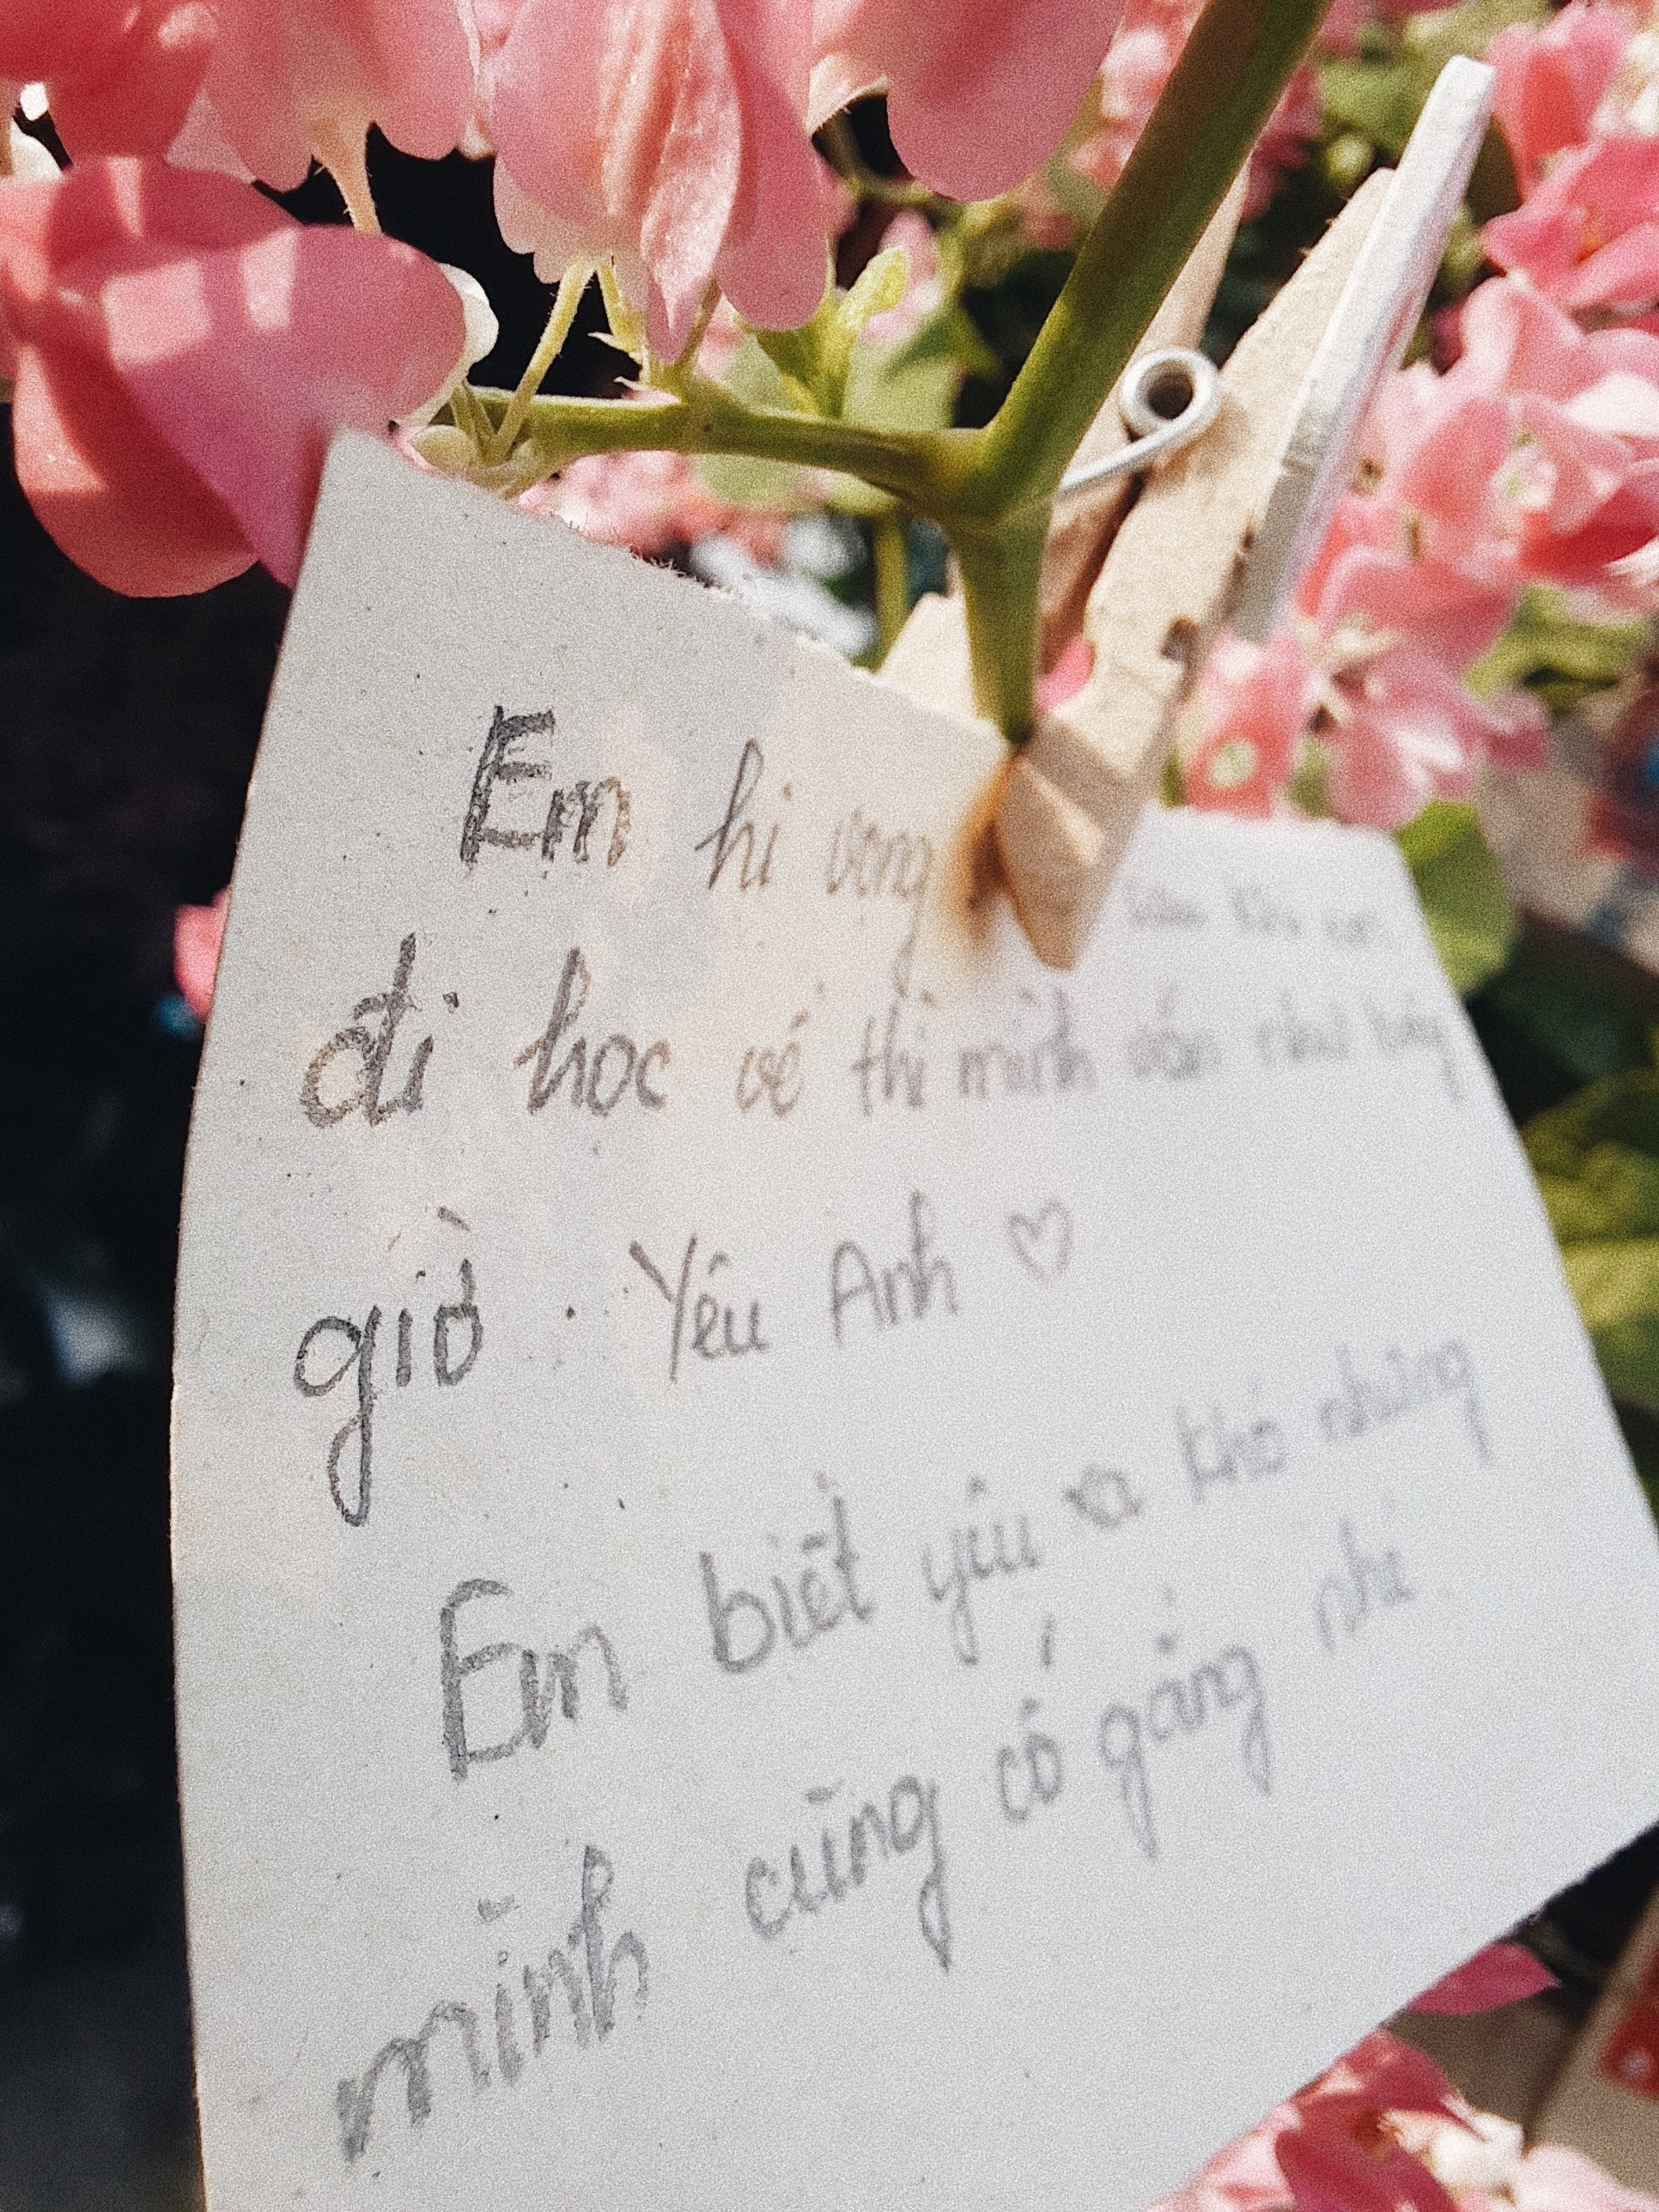 Em hi vong
đi hoc về thì mình vẫn như bây
giờ. Yêu Anh ♡
Em biết yêu xa khó nhưng
mình cũng cố gắng nhé.